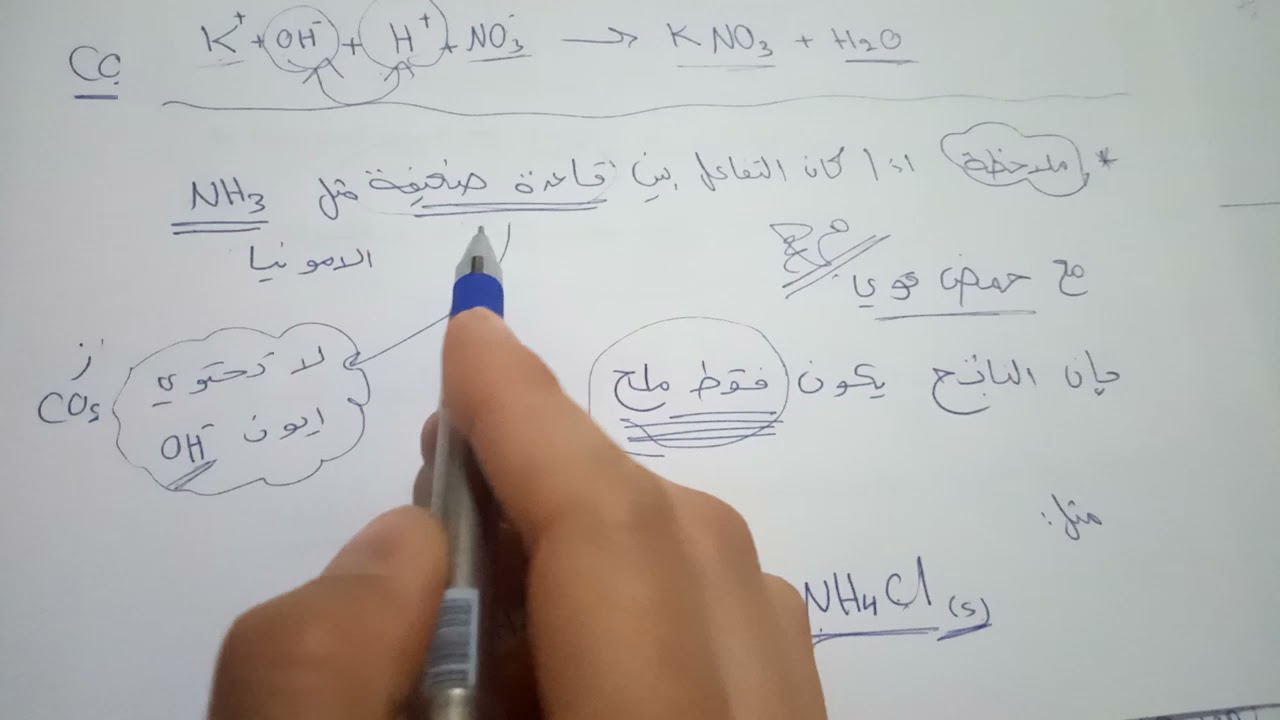 K⁺ + OH⁻ + H⁺ + NO₃⁻ → KNO₃ + H₂O
* ملاحظة اذا كان التفاعل بين قاعدة ضعيفة مثل NH₃
الامونيا
مع حمض قوي
فإن الناتج يكون فقط ملح
لا تحتوي
ايون OH⁻
مثل:
NH₄Cl(s)